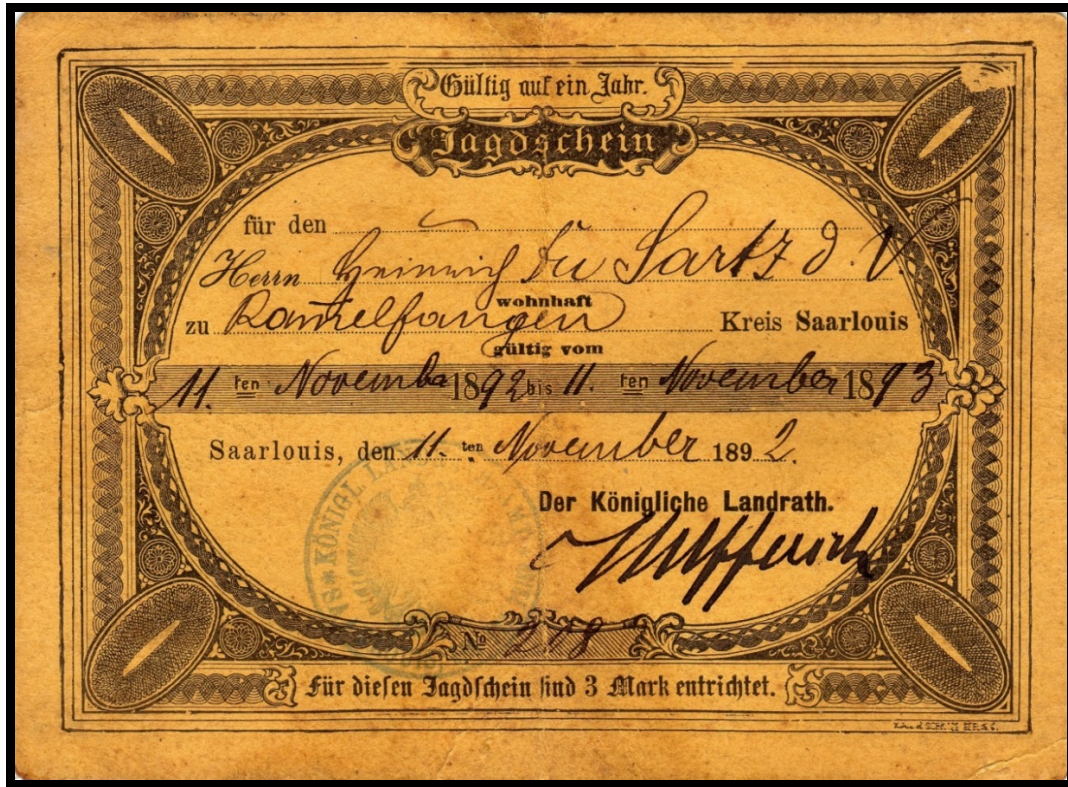 Gültig auf ein Jahr.
Jagdschein
für den
Herrn Heinrich du Sartz d. V.
wohnhaft
zu Ramelfangen Kreis Saarlouis
gültig vom
11. ten November 1892 bis 11. ten November 1893
Saarlouis, den 11. ten November 1892.
Der Königliche Landrath.
KÖNIGL.
No 278
Für diesen Jagdschein sind 3 Mark entrichtet.